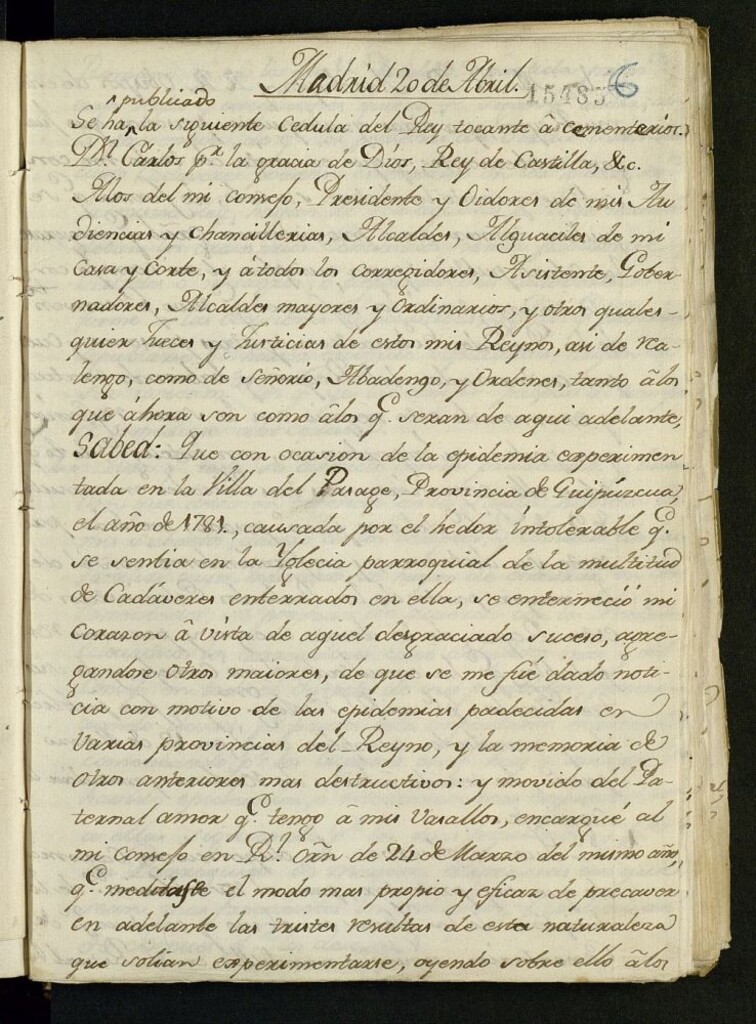 Madrid 20 de Abril.
15483 6
^ publicado
Se ha ^ la siguiente Cedula del Rey tocante â cementerios.
Dn. Carlos pr. la gracia de Dios, Rey de Castilla, &c.
Alos del mi consejo, Presidente y Oidores de mis Au
diencias y chancillerias, Alcaldes, Alguaciles de mi
Casa y Corte, y átodos los corregidores, Asistente, Gober-
nadores, Alcaldes mayores y ordinarios, y otros quales-
quier Jueces y Justicias de estos mis Reynos, asi de rea-
lengo, como de Señorío, Abadengo, y Ordenes, tanto âlos
que áhora son como âlos q.e seran de aqui adelante,
Sabed: Que con ocasion de la epidemia experimen-
tada en la Villa del Pasage, Provincia de Guipúzcua,
el año de 1781., causada por el hedor intolerable q.e
se sentia en la Yglecia parroquial de la multitud
de Cadáveres enterrados en ella, se enterneció mi
corazon â vista de aquel desgraciado suceso, agre-
gandose otros maiores, de que se me fué dado noti-
cia con motivo de las epidemias padecidas en
varias provincias del Reyno, y la memoria de
otros anteriores mas destructivos: y movido del Pa-
ternal amor q.e tengo â mis vasallos, encargué al
mi consejo en Rl. orn de 24 de Marzo del mismo año,
q.e meditase el modo mas propio y eficaz de precaver
en adelante las tristes resultas de esta naturaleza
que solian experimentarse, oyendo sobre ello âlos